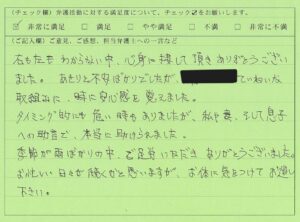 (チェック欄) 弁護活動に対する満足度について、チェック☑をお願いします。
☑ 非常に満足 □ 満足 □ やや満足 □ 不満 □ 非常に不満
(ご記入欄) ご意見、ご感想、担当弁護士への一言など
右も左もわからない中、心身に接して頂きありがとうござい
ました。あたりと不安ばかりでしたが、ていねいな
取組みに、時に安心感を覚えました。
タイミング的にも危い時もありましたが、私や妻、そして息子
への助言で、本当に助けられました。
季節が雨ばかりの中、ご足労いただき ありがとうございました。
お忙しい日々が続くかと思いますが、お体に気をつけてお過し
下さい。